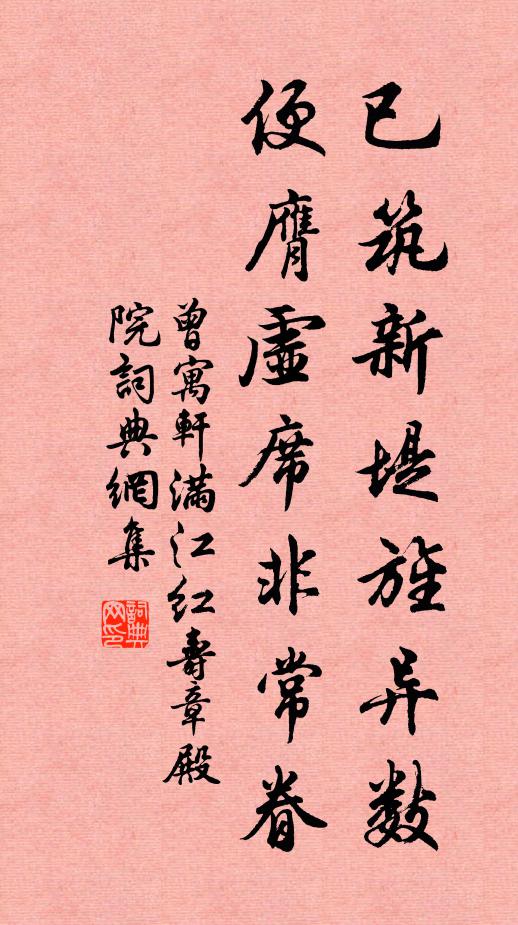 已筑新堤旌异数
便膺虚席非常眷
曾寓軒滿江红壽章殿
院詞典網集
詞典网印